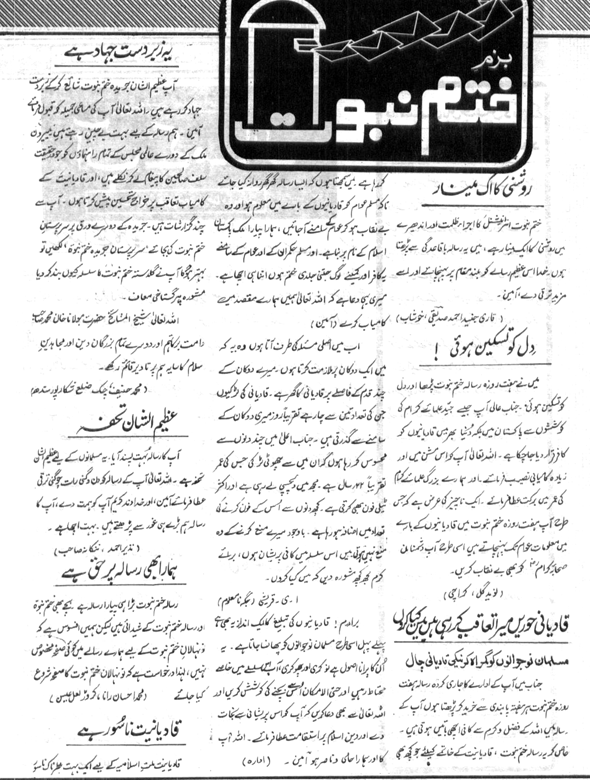 بزم
ختم نبوت
روشنی کا اک مینار
ختم نبوت انٹرنیشنل کا اجراء ظلمت اور اندھیرے
میں روشنی کا ایک مینار ہے، میں یہ رسالہ باقاعدگی سے پڑھتا
ہوں۔ خدا اس عظیم رسالے کو بلند مقام پر پہنچائے اور اسے
مزید ترقی دے، آمین۔
(قاری جنید احمد صدیقی، خوشاب)
دل کو تسکین ہوئی!
میں نے ہفت روزہ رسالہ ختم نبوت پڑھا اور دل
کو تسکین ہوئی۔ جناب عالی آپ جیسے جید علمائے کرام کی
کوششوں سے پاکستان میں بلکہ دنیا بھر میں قادیانیوں کو
کافر قرار دیا جا چکا ہے۔ اللہ تعالیٰ آپ کو اس مشن میں اور
زیادہ کامیابی نصیب فرمائے۔ اور ہمارے بزرگ علمائے کرام
کی عمر میں برکت عطا فرمائے۔ ایک ناچیز کی عرض ہے کہ جس
طرح آپ ہفت روزہ ختم نبوت میں قادیانیوں کے بارے
میں معلومات عوام تک پہنچاتے ہیں اسی طرح آپ دشمنان
صحابہ کرام کو بھی بے نقاب کریں۔
(نوید گل، کراچی)
قادیانی حوریں میرا تعاقب کر رہی ہیں میں کیا کروں
مسلمان نوجوانوں کو گمراہ کرنیکی قادیانی چال
جناب میں آپ کے ادارے کا جاری کردہ رسالہ ہفت
روزہ ختم نبوت ہر ہفتہ پابندی سے خرید کر پڑھتا ہوں آپ کے
رسالہ میں اللہ کے فضل و کرم سے کافی اچھی باتیں ہوتی ہیں۔
خاص کر یہ رسالہ ختم نبوت، قادیانیت کے خاتمے کیلئے جو کچھ بھی
کر رہا ہے۔ میں سمجھتا ہوں کہ ایسا رسالہ گھر گھر روانہ کیا جائے
تاکہ مسلم عوام کو قادیانیوں کے بارے میں معلوم ہو اور وہ
بے نقاب ہو کر عوام کے سامنے آجائیں، ہمارا پیارا ملک پاکستان
اسلام کے نام پر بنا ہے۔ اور مسلم حکمرانوں کے اور عوام کے سامنے
یہ کافر اور کمینے لوگ جتنی جلدی ختم ہوں اتنا ہی اچھا ہے۔
میری یہی دعا ہے کہ اللہ تعالیٰ ہمیں ہمارے مقصد میں
کامیاب کرے (آمین)
اب میں اصل مسئلہ کی طرف آتا ہوں وہ یہ کہ
میں ایک دوکان پر ملازمت کرتا ہوں۔ میرے دوکان کے
چند قدم کے فاصلے پر قادیانی کا گھر ہے۔ قادیانی کی لڑکیوں
جن کی تعداد تین سے چار ہے تقریباً روز میری دوکان کے
سامنے سے گذرتی ہیں۔ جناب اعلیٰ میں چند دنوں سے
محسوس کر رہا ہوں کہ ان میں سے چھوٹی لڑکی جس کی عمر
تقریباً ۲۳ سال ہے۔ مجھ میں دلچسپی لے رہی ہے اور اکثر
ٹیلی فون بھی کرتی ہے۔ کچھ دنوں سے اُس کے فون کرنے کی
تعداد میں اضافہ ہو رہا ہے۔ باوجود میرے منع کرنے کے وہ
منع نہیں ہوتی ہیں اس سلسلہ میں کافی پریشان ہوں، برائے
کرم مجھے کچھ مشورہ دیں کہ میں کیا کروں۔
ا۔ی۔ قریشی (جگہ نامعلوم)
برادرم! قادیانیوں کی تبلیغ کا ایک انداز یہ بھی ہے
پہلے پہل اسی طرح مسلمان نوجوانوں کو پھانسا جاتا ہے۔ یہ
اُن کا پرانا اصول ہے نوکری اور چھوکری! آپ اس سلسلے میں خاصے
محتاط رہیں اور حتی الامکان اس سے بچنے کی کوشش کریں اور
اللہ تعالیٰ سے بھی دعا کریں کہ آپ کو اس پریشانی سے نجات
دے اور دین اسلام پر استقامت عطا فرمائے۔ اللہ آپ
کا اور ہمارا حامی و ناصر ہو آمین۔ (ادارہ)
یہ زبردست جہاد ہے
آپ عظیم الشان جریدہ ختم نبوت شائع کر کے زبردست
جہاد کر رہے ہیں اللہ تعالیٰ آپ کی مساعی جمیلہ کو قبول فرمائے
آمین۔ ہم رسالہ کے لیے بہت بے چین رہتے ہیں بیرون
ملک کے دورے عالمی مجلس کے تمام رہنماؤں کو جو درحقیقت
سلف صالحین کا پیغام لے کر نکلے ہیں، اور قادیانیت کے
کامیاب تعاقب پر خراج تحسین پیش کرتا ہوں۔ آپ سے
چند گزارشات ہیں۔ جریدہ کے دوسرے ورق پر سرپرستان
ختم نبوت کی بجائے "سرپرستان جریدہ ختم نبوت" لکھیں تو
بہتر ہوگا آپ نے گلدستہ ختم نبوت کا سلسلہ کیوں بند کر دیا
مشورہ پر گستاخی معاف۔
اللہ تعالیٰ شیخ المشائخ حضرت مولانا خان محمد صاحب
دامت برکاتہم اور دوسرے تمام بزرگان دین اور مجاہدین
اسلام کا سایہ ہم پر تا دیر قائم رکھے۔
(محمد حنیف جنگ ضلع شکارپور سندھ)
عظیم الشان تحفہ
آپ کا رسالہ بہت پسند آیا۔ یہ مسلمانوں کے لیے عظیم الشان
تحفہ ہے۔ اللہ تعالیٰ آپ کے رسالہ کو دن دگنی رات چوگنی ترقی
عطا فرمائے آمین، اور خداوند کریم آپ کو ہمت دے، آپ کا
رسالہ ہم بڑے ہی غور سے پڑھتے ہیں۔ بہت اچھا ہے۔
(نذیر احمد، ننکانہ صاحب)
ہمارا بھی رسالہ پر حق ہے
رسالہ ختم نبوت بڑا ہی پیارا رسالہ ہے بچے بھی ختم نبوۃ
اور رسالہ ختم نبوت کے شیدائی ہیں لیکن ہمیں افسوس ہے کہ
نونہالان ختم نبوت کے لیے ہمارے رسالے میں کوئی صفحہ مخصوص
نہیں، لہذا درخواست ہے کہ نونہالان ختم نبوت کا صفحہ شروع
کیا جائے (محمد احسان رانا، کروڑ لعل عیسن)
قادیانیت ناسور ہے
قادیانیت ملت اسلامیہ کے لیے ایک بہت خطرناک ناسور